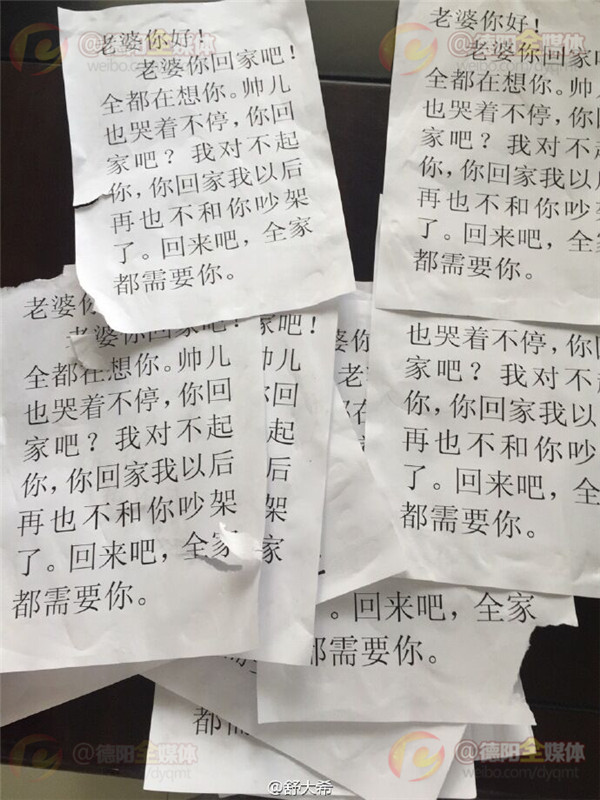 老婆你好！
老婆你回家吧！
全都在想你。帅儿
也哭着不停，你回
家吧？我对不起
你，你回家我以后
再也不和你吵架
了。回来吧，全家
都需要你。
老婆你好！
老婆你回家
全都在想你。帅
也哭着不停，你
家吧？我对不
你，你回家我以后
再也不和你吵架
了。回来吧，全
都需要你。
老婆你
老婆你回家吧！
全都在想你。帅儿
也哭着不停，你回
家吧？我对不起
你，你回家我以后
再也不和你吵架
了。回来吧，全家
都需要你。
家吧！
儿
回
起
后
架
家
婆你
老
全都在
也哭着不停，你
家吧？我对不
你，你回家我以
再也不和你吵
了。回来吧，全
都需要你。
。回来吧，全家
都需要你。
都需
@德阳全媒体
weibo.com/dyqmt
@德阳全媒体
weibo.com/dyqmt
@德阳全媒体
weibo.com/dyqmt
@德阳全媒体
weibo.com/dyqmt
@舒大希